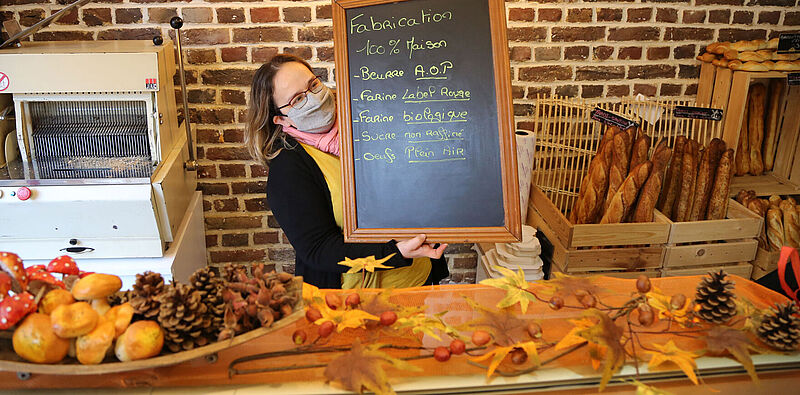 Fabrication
100% Maison
- Beurre A.O.P
- Farine Label Rouge
- Farine biologique
- Sucre non Raffiné
- Oeufs Plein Air